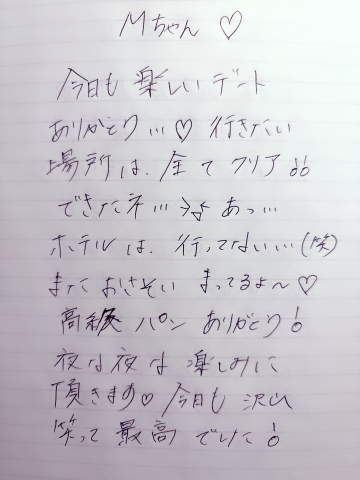 Mちゃん ♡
今日も 楽しい デート
ありがとう…♡ 行きたい
場所は、全て クリア
できたネ… あっ…
ホテルは、行ってない…(笑)
またおさそい まってるよ〜♡
高級 パン ありがとう!
夜な夜な 楽しみに
頂きます♡ 今日も 沢山
笑って 最高 でした!